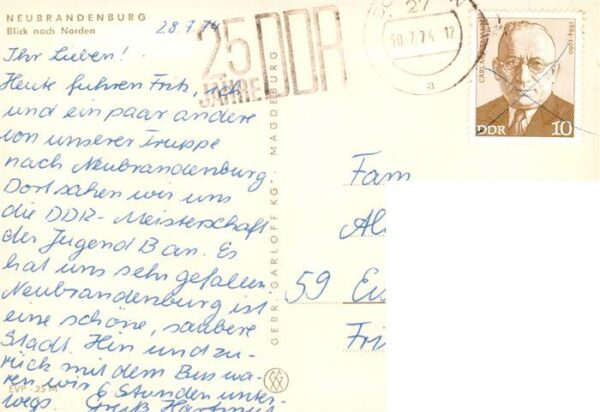 NEUBRANDENBURG
Blick nach Norden
28.7.74
Ihr Lieben!
Heute fuhren Fritz, ich
und ein paar andere
von unserer Truppe
nach Neubrandenburg.
Dort sahen wir uns
die DDR-Meisterschaft
der Jugend B an. Es
hat uns sehr gefallen.
Neubrandenburg ist
eine schöne, saubere
Stadt. Hin und zu-
rück mit dem Bus wa-
ren wir 6 Stunden unter-
wegs. Gruß
EVP -.25 M
GEBR. GARLOFF KG. MAGDEBURG
25
JAHRE DDR
27
30.7.74 12
a
1884-1960
DDR 10
Fam
59